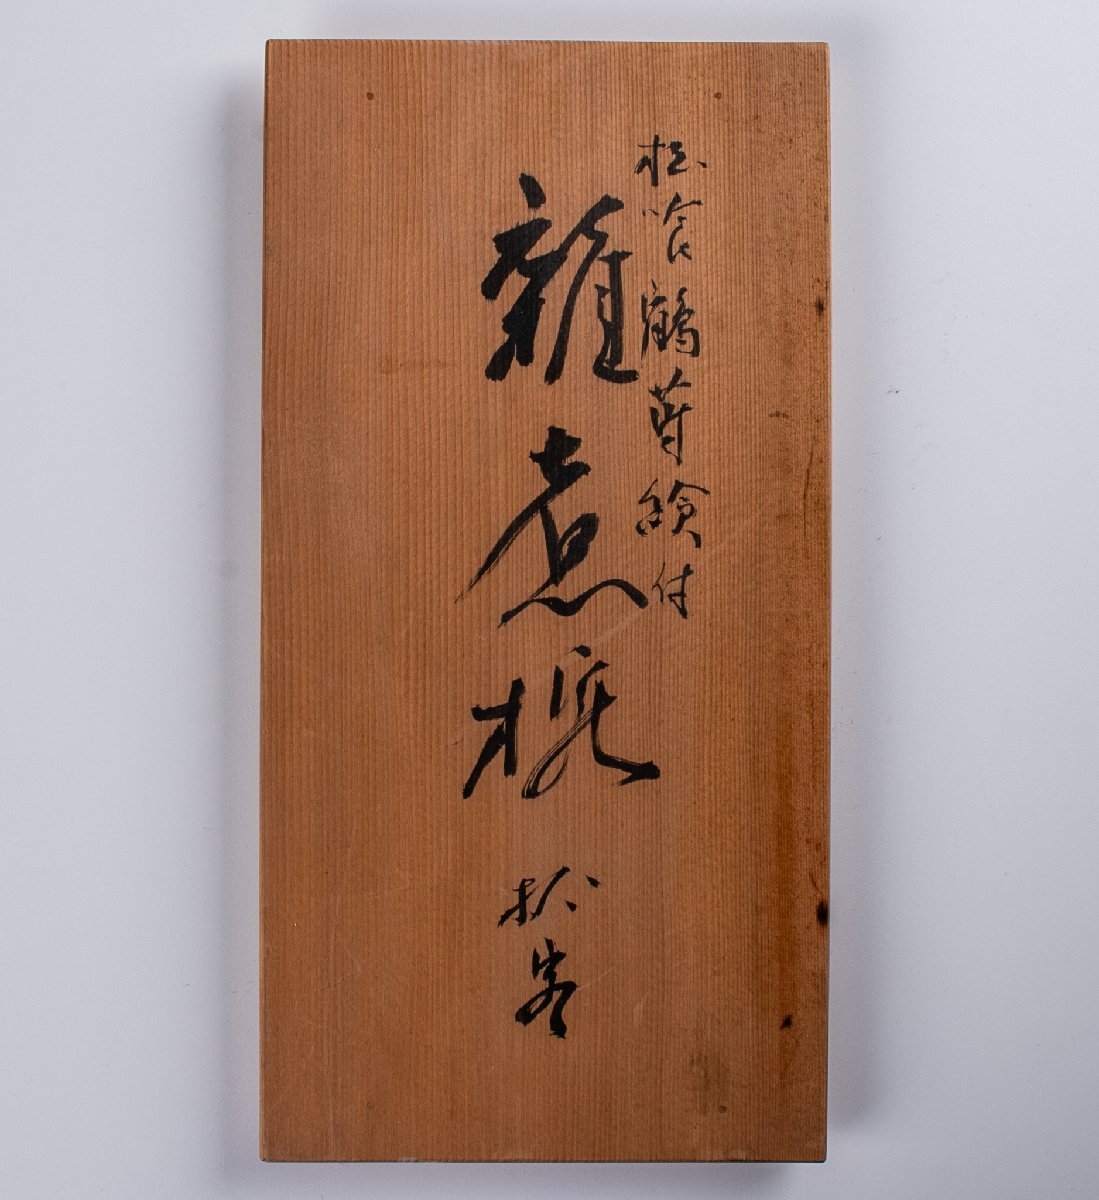 松喰鶴蒔絵付
雑煮椀